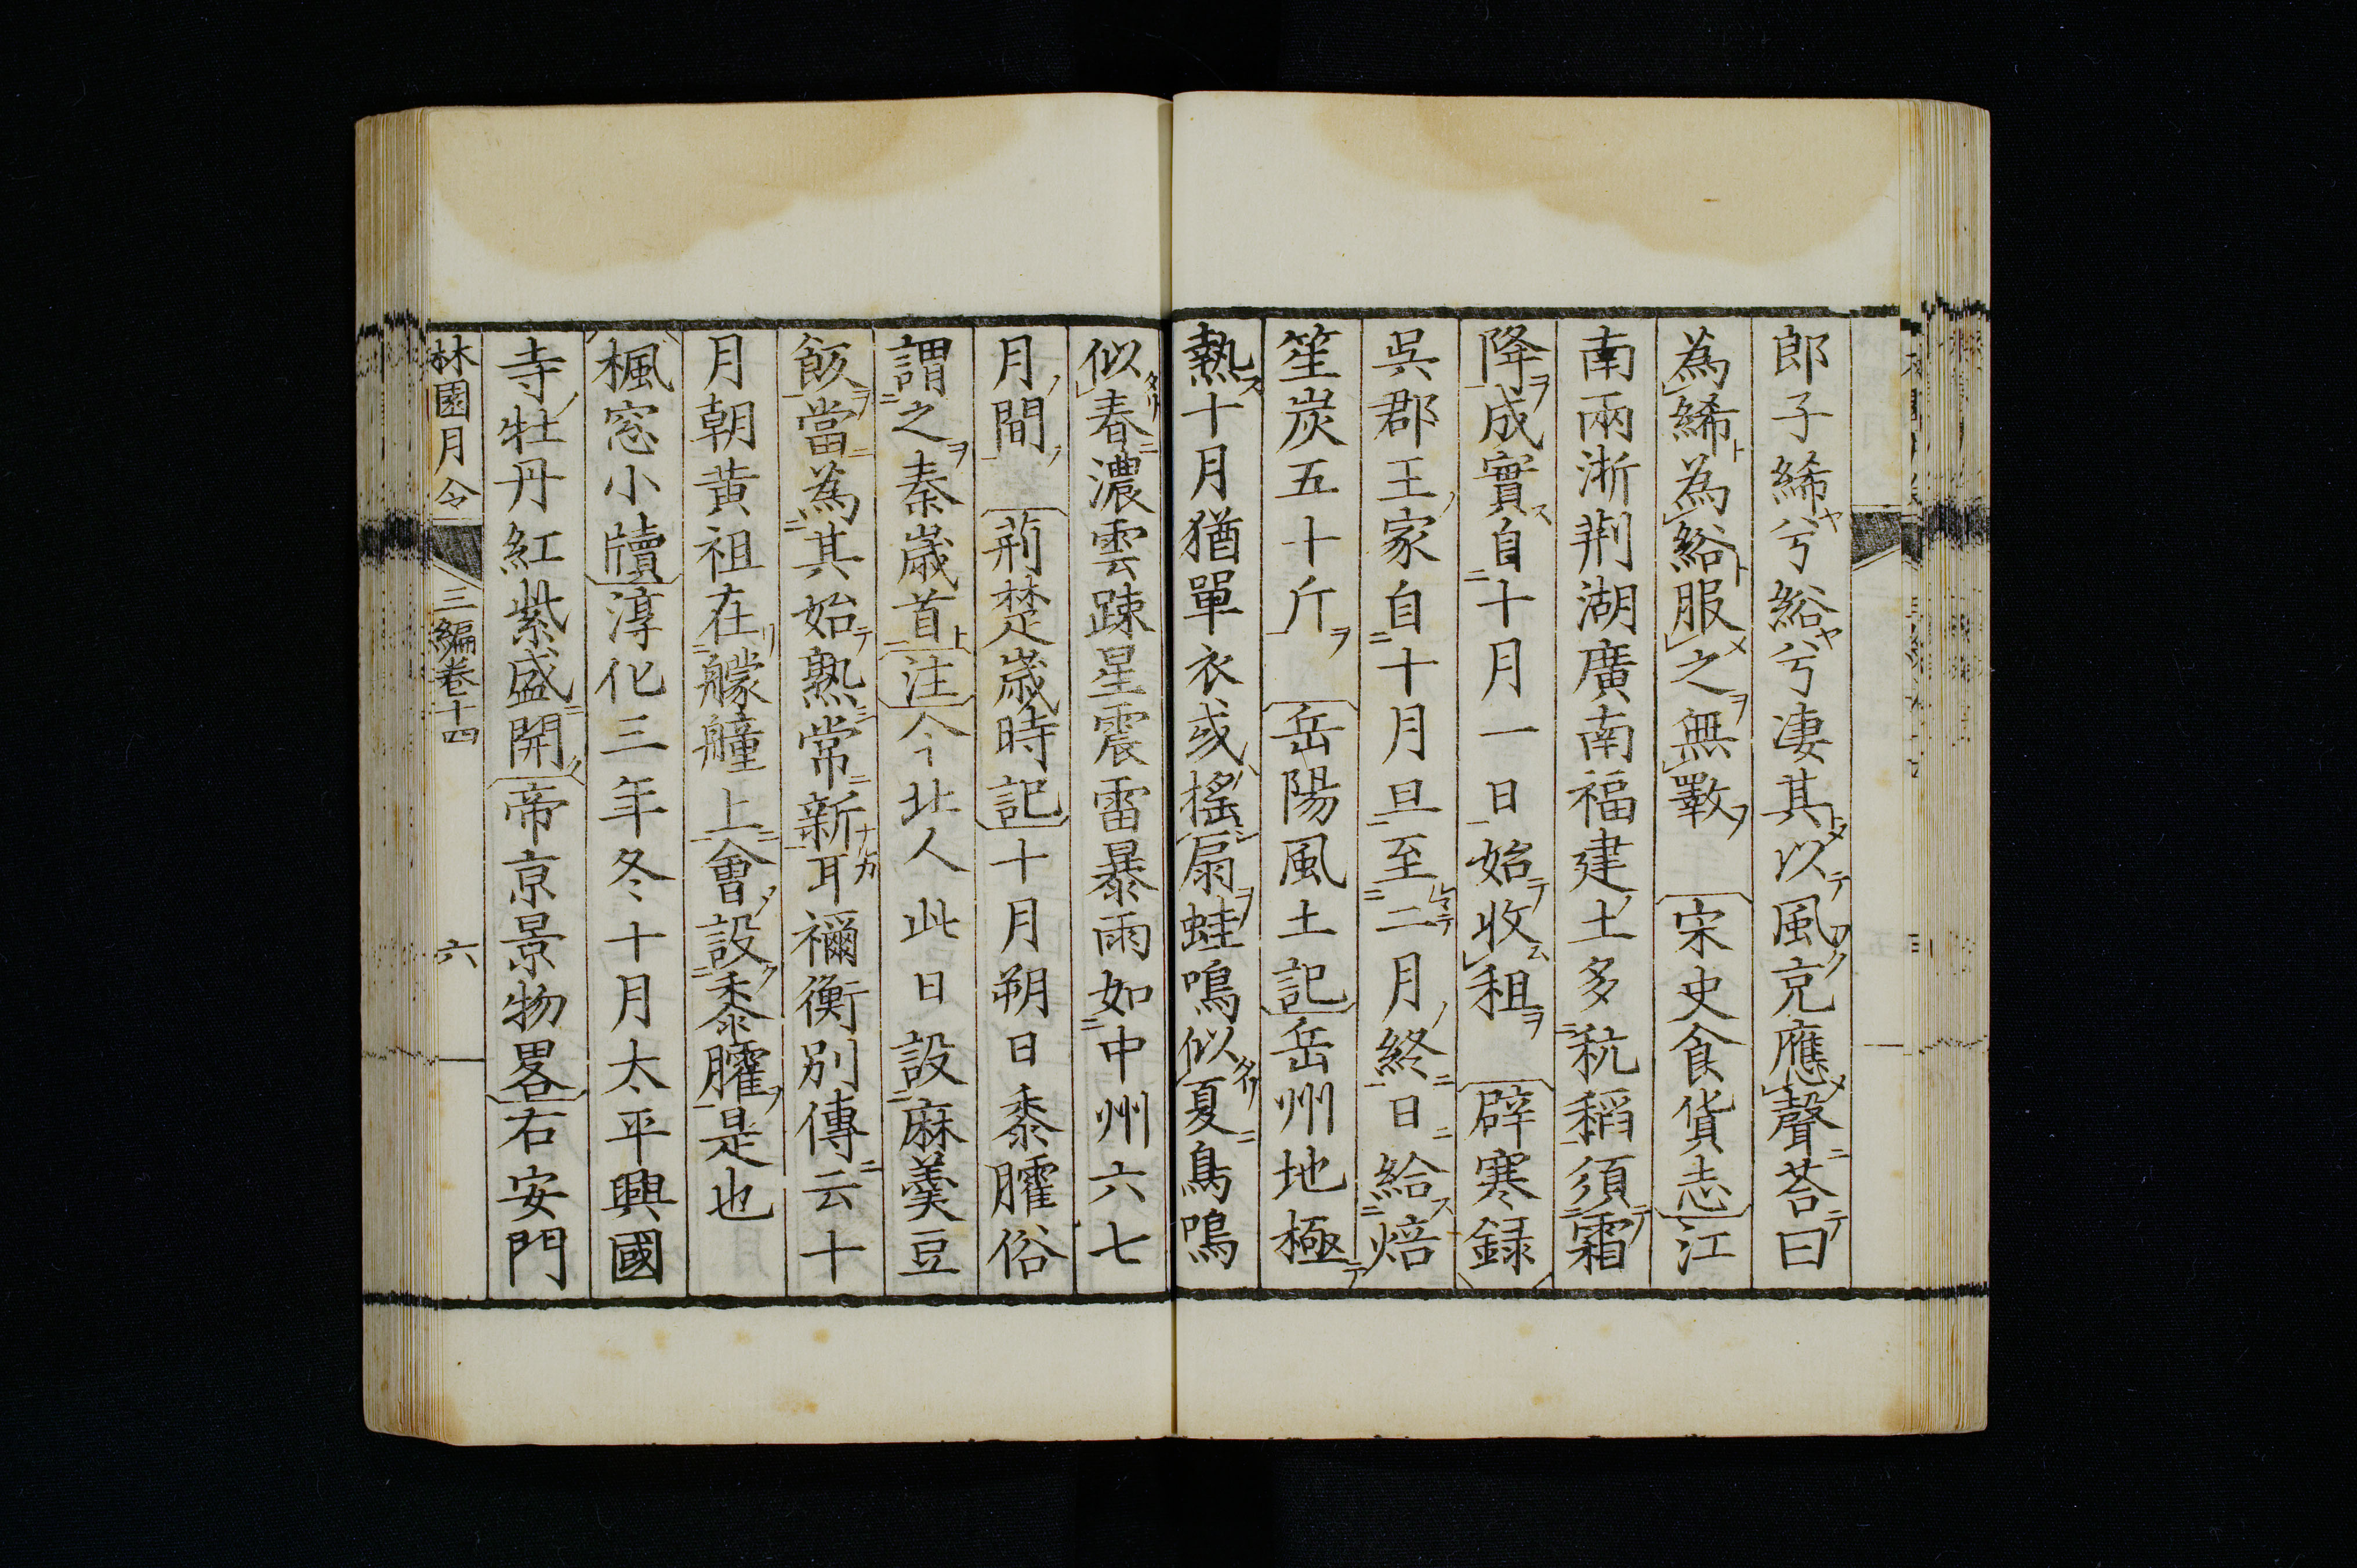 郎子絺兮綌兮凄其以風克應聲荅曰
為絺為綌服之無斁　宋史食貨志江
南兩浙荆湖廣南福建土多秔稻須霜
降成實自十月一日始收租　辟寒録
吳郡王家自十月旦至二月終日給焙
笙炭五十斤　岳陽風土記岳州地極
熱十月猶單衣或搖扇蛙鳴似夏鳥鳴
似春濃雲疎星震雷暴雨如中州六七
月間　荊楚歲時記十月朔日黍臛俗
謂之秦歲首注今北人此日設麻羹豆
飯當為其始熟常新耳禰衡別傳云十
月朝黄祖在艨艟上會設黍臛是也
楓窓小牘淳化三年冬十月太平興國
寺牡丹紅紫盛開帝京景物畧右安門
林園月令　三編卷十四　六